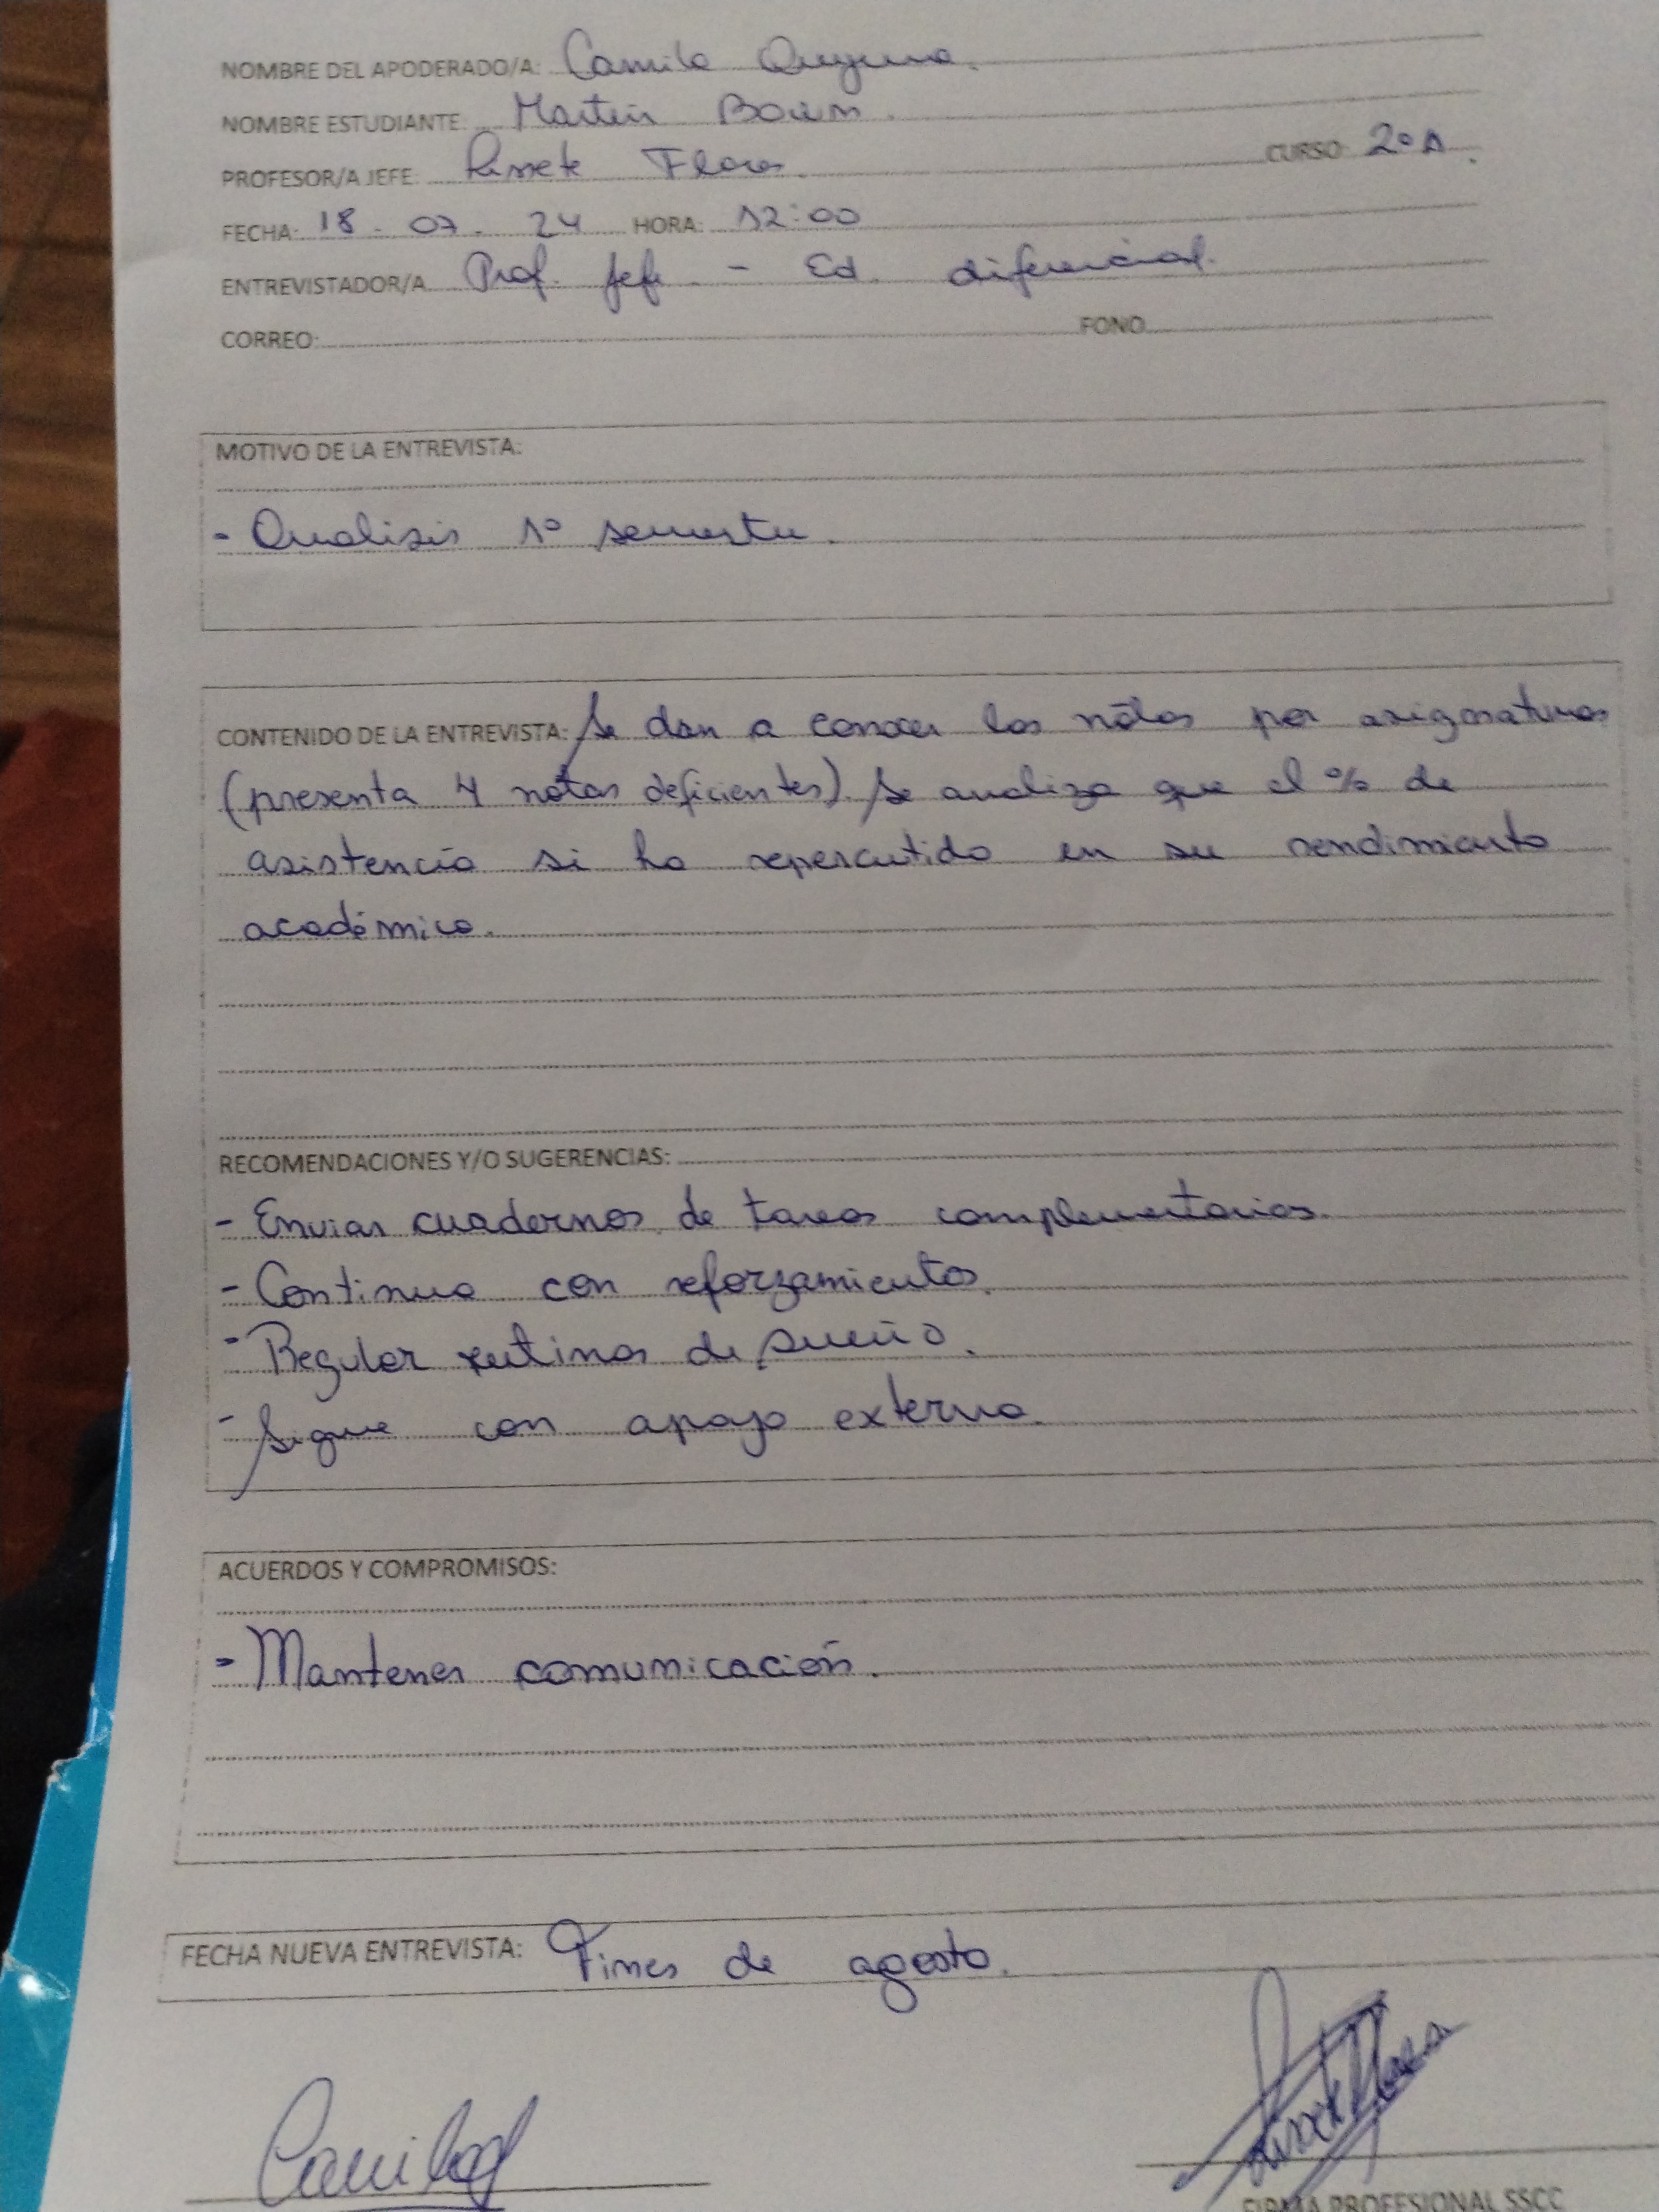 NOMBRE DEL APODERADO/A: Camila
NOMBRE ESTUDIANTE: Martin
PROFESOR/A JEFE: Lissete Flores. CURSO: 2º A.
FECHA: 18 - 07 - 24 HORA: 12:00
ENTREVISTADOR/A Prof. Jefe - Ed. diferencial.
CORREO: FONO
MOTIVO DE LA ENTREVISTA:
- Analisis 1º semestre.
CONTENIDO DE LA ENTREVISTA: Se dan a conocer las notas por asignaturas
(presenta 4 notas deficientes). Se analiza que el % de
asistencia si ha repercutido en su rendimiento
académico.
RECOMENDACIONES Y/O SUGERENCIAS:
- Enviar cuadernos de tareas complementarias.
- Continua con reforzamientos.
- Regular rutinas de sueño.
- Sigue con apoyo externo.
ACUERDOS Y COMPROMISOS:
- Mantener comunicación.
FECHA NUEVA ENTREVISTA: Fines de agosto.
FIRMA PROFESIONAL SSCC